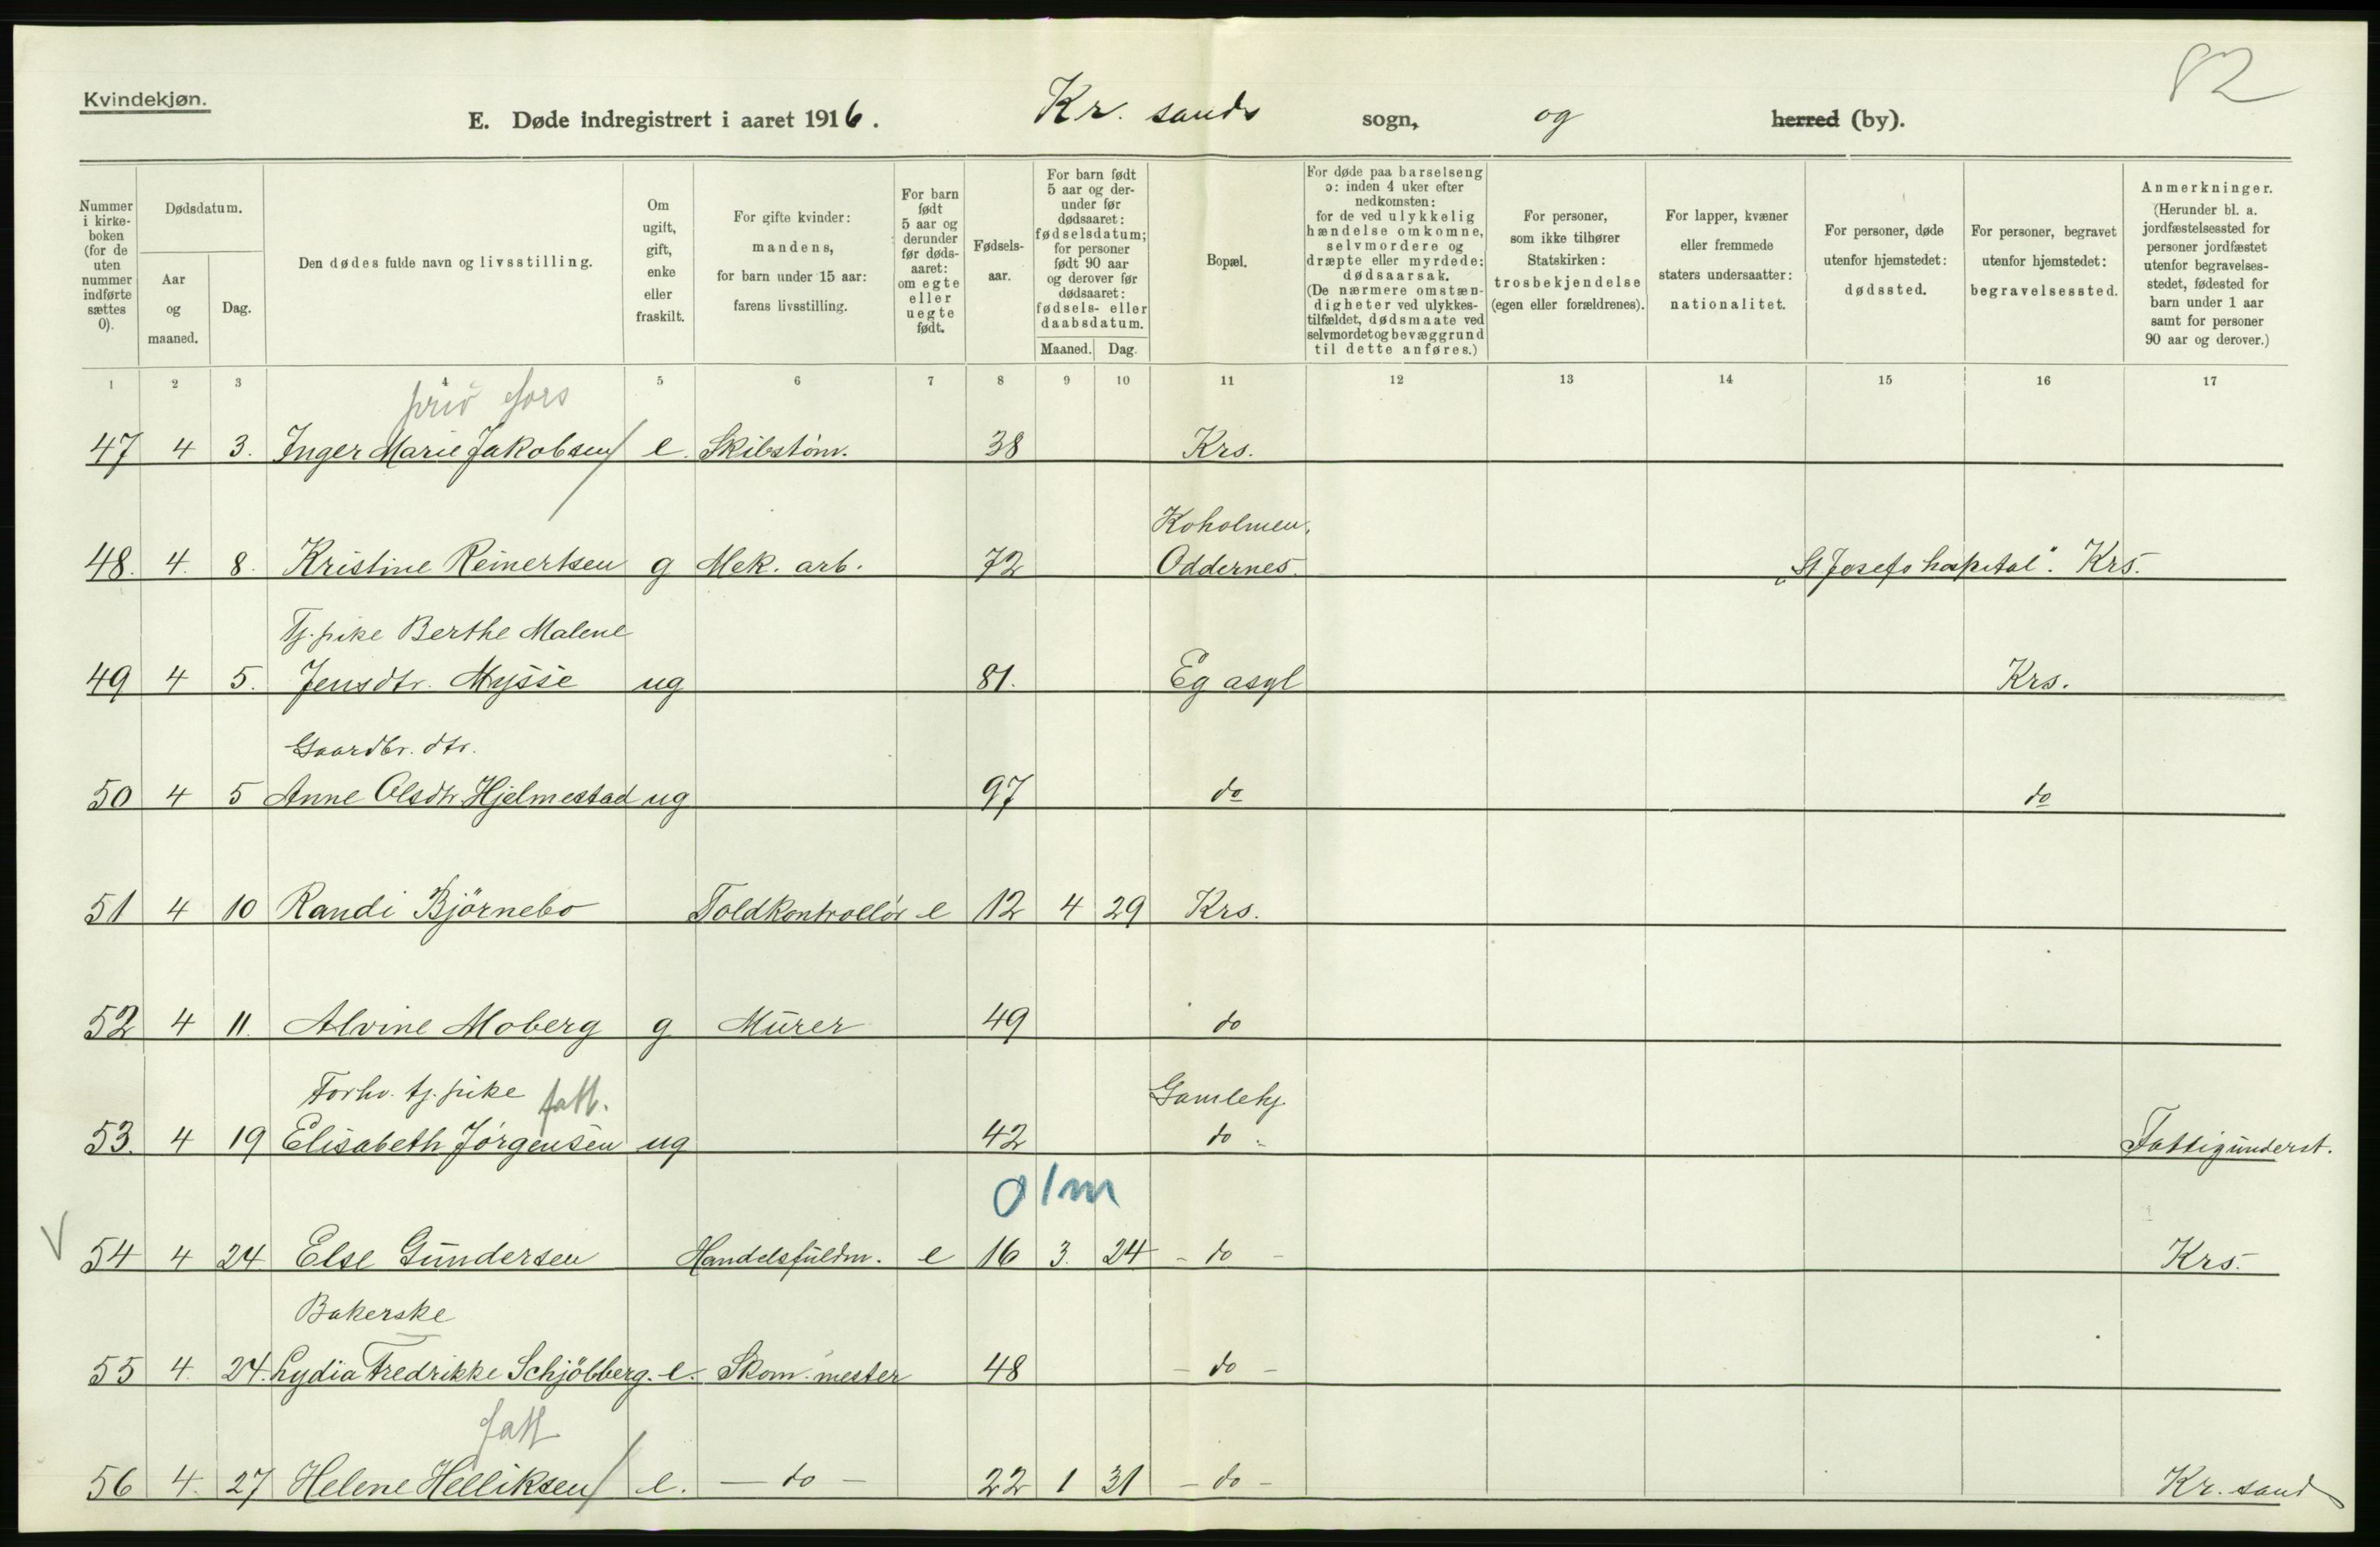 82
Kvindekjøn.
E. Døde indregistrert i aaret 1916. Kr. sands sogn, og herred (by).
Nummer i kirkeboken (for de uten nummer indførte sættes 0).
Dødsdatum.
Aar og maaned.
Dag.
Den dødes fulde navn og livsstilling.
Om ugift, gift, enke eller fraskilt.
For gifte kvinder: mandens, for barn under 15 aar: farens livsstilling.
For barn født 5 aar og derunder før dødsaaret: om egte eller uegte født.
Fødselsaar.
For barn født 5 aar og derunder før dødsaaret: fødselsdatum; for personer født 90 aar og derover før dødsaaret: fødsels- eller daabsdatum.
Maaned. Dag.
Bopæl.
For døde paa barselseng ɔ: inden 4 uker efter nedkomsten: for de ved ulykkelig hændelse omkomne, selvmordere og dræpte eller myrdede: dødsaarsak. (De nærmere omstændigheter ved ulykkestilfældet, dødsmaate ved selvmordet og bevæggrund til dette anføres.)
For personer, som ikke tilhører Statskirken: trosbekjendelse (egen eller forældrenes).
For lapper, kvæner eller fremmede staters undersaatter: nationalitet.
For personer, døde utenfor hjemstedet: dødssted.
For personer, begravet utenfor hjemstedet: begravelsessted.
Anmerkninger. (Herunder bl. a. jordfæstelsessted for personer jordfæstet utenfor begravelsesstedet, fødested for barn under 1 aar samt for personer 90 aar og derover.)
1 2 3 4 5 6 7 8 9 10 11 12 13 14 15 16 17
priv fors
47 4 3. Inger Marie Jakobsen e. Skibstöm. 38 Krs.
Koholmen,
48. 4. 8. Kristine Reinertsen g Mek. arb. 72 Oddernes. "St. Josefs hospital". Krs.
Tj. pike Berthe Malene
49 4 5. Jensdtr. Mysse ug 81. Eg asyl Krs.
Gaardbr. dtr.
50 4 5 Anne Olsdtr Hjelmestad ug 97 do do
51 4 10 Randi Björnebo Toldkontrollör e 12 4 29 Krs.
52 4 11. Alvine Moberg g Murer 49 do
Forhv. tj. pike fatt. Gamlehj.
53. 4 19 Elisabeth Jörgensen ug 42 do Fattigunderst.
0 1m
V 54 4 24 Else Gundersen Handelsfuldm. e 16 3. 24 - do - Krs.
Bakerske
55 4. 24. Lydia Fredrikke Schjölberg. e. Skom. mester 48 - do -
fatt
56 4. 27 Helene Helliksen e. - do - 22 1 31 - do - Kr. sand